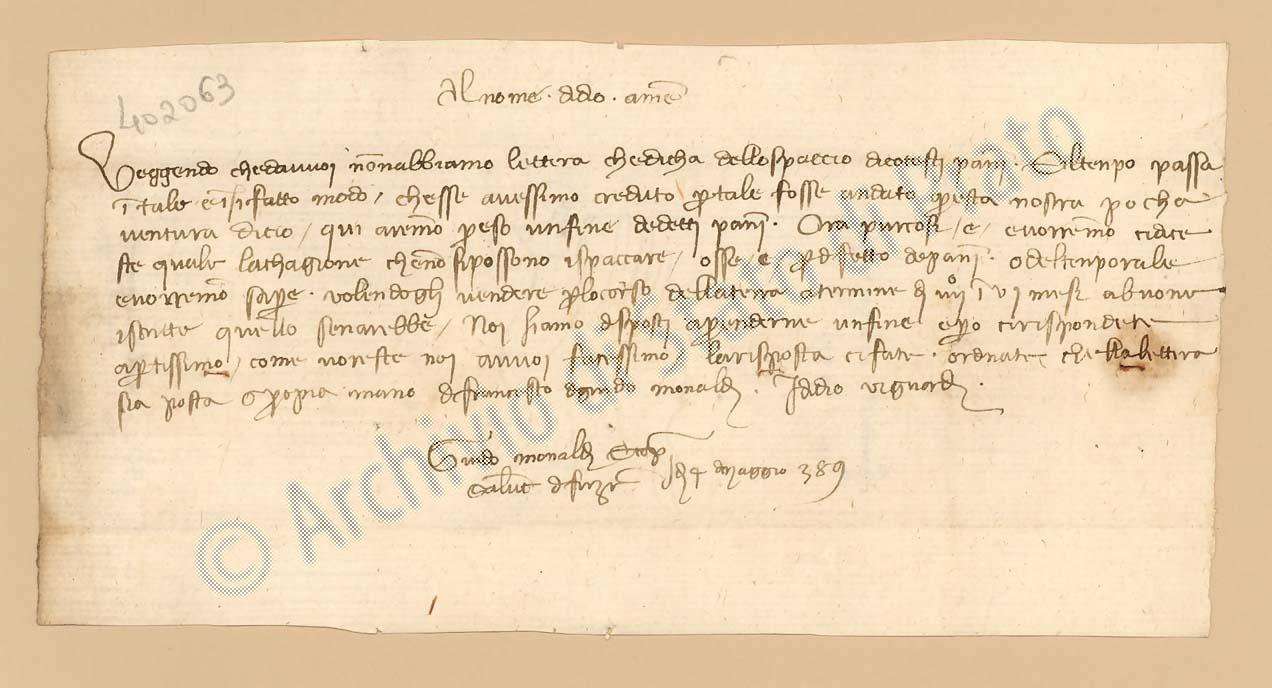 402063
Al nome · dido · amē
Veggendo chedavvoi nōnabbiamo lettera chedicha dellospaccio dicotesti pāni · Eltenpo passa
ī tale e īsifatto modo / chesse avessimo creduto p tale fosse andato p questa nostra pocha
ventura dicio / qui avremo preso unfine dedetti pāni · Ora purcosi / e / evorremo cidice
ste quale lachagione chenō sipossono ispacciare / osse / e / p difetto depāni · o deltenporale
evorremo sapere · volendogli vendere p locorso dellaterra a termine di iiijº ī vi mesi abuone
iscritte quello senarebbe / Noi siamo disposti aprenderne unfine epero cirispondete
apertissimo / come voreste noi avvoi facessimo larisposta cifate · ordinate che lla lettera
sia posta propia mano difrancesco di guido monaldi · Iddio vi guardi ·
Guido monaldi
Salute di firenze dì 4 di maggio 389
© Archivio di Stato di Prato